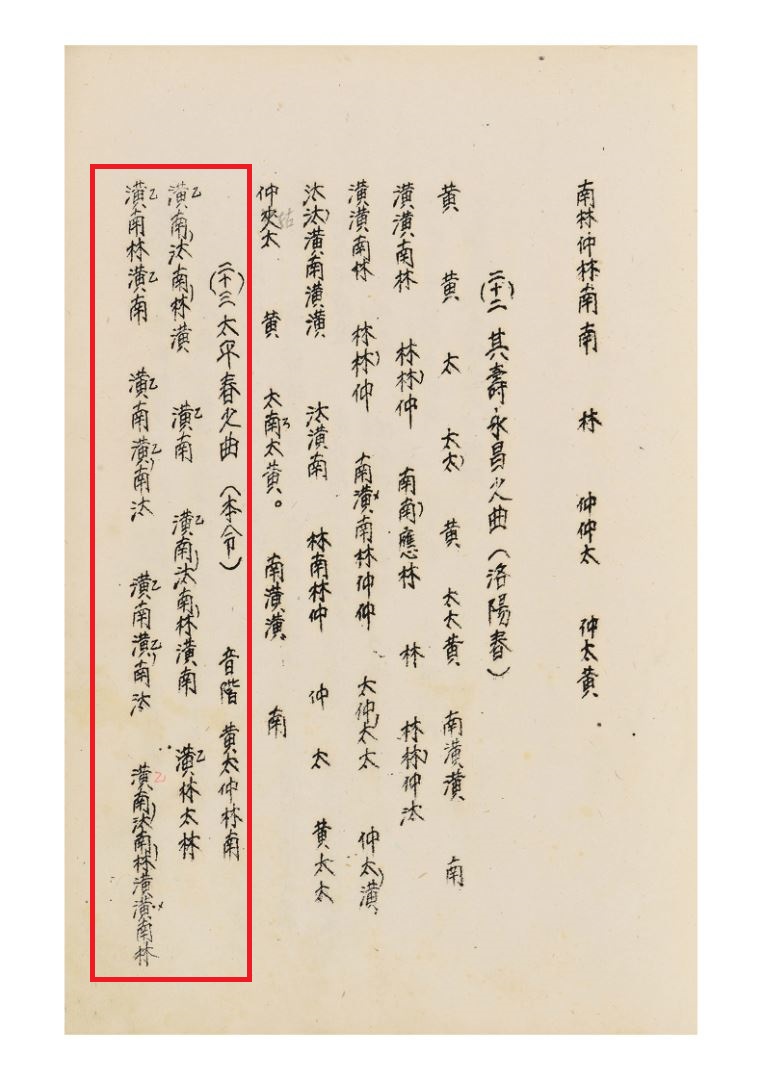 南林仲林南南 林 仲仲太 仲太黃
(二十二) 其壽永昌之曲 (洛陽春)
黃 黃 太 太太) 黃 太太黃 南潢潢 南
潢潢南林 林林)仲 南南)應林 林 林林)仲汰
潢潢南林 林林)仲 南潢南林仲仲 太仲)太太 仲太)潢
汰汰)潢南潢潢 汰潢南 林南林仲 仲 太 黃太太
仲夾太 黃 太南太黃。 南潢潢 南
姑
(二十三) 太平春之曲 (本令) 音階 黃太仲林南
潢乙南)汰南)林潢 潢乙南 潢乙南)汰南)林潢南 潢乙林太林
潢乙南林潢乙南 潢乙南潢乙)南汰 潢乙南潢乙)南汰 潢乙南)汰南)林潢潢南林